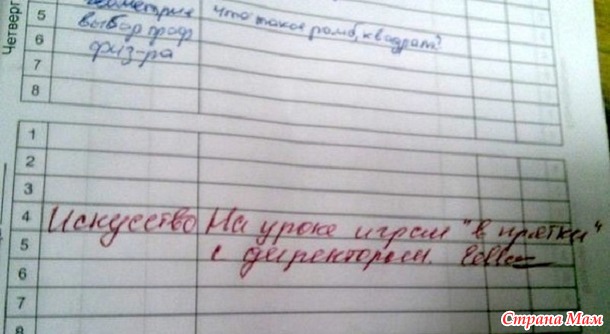 Четверг
геометрия что такое ромб, квадрат?
5 выбор граф
6 физ-ра
7
8
1
2
3
4 Искусство На уроке играет "в прятки"
5 с директором.
6
7
8
Страна Мам